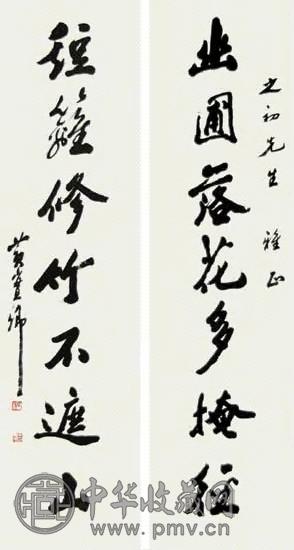 之初先生 雅正
幽圃落花多掩徑
短籬修竹不遮山
黃 卿
中华收藏网
www.pmv.cn